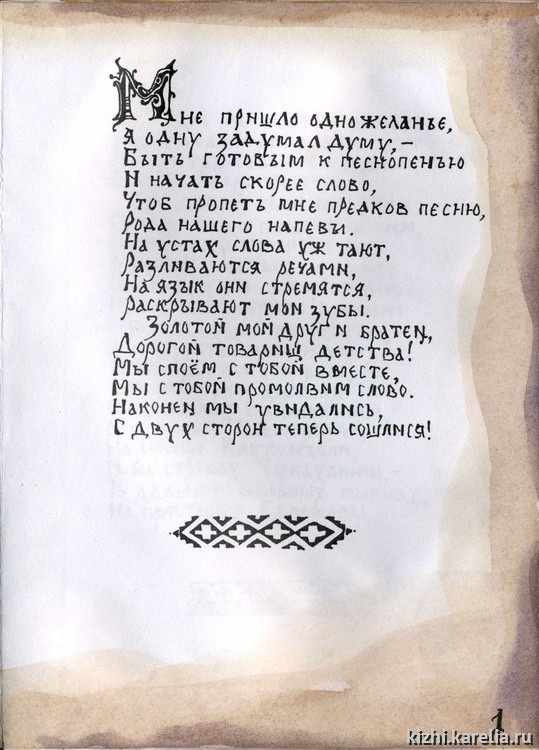 Мне пришло одно желанье,
Я одну задумал думу,–
Быть готовым к песнопенью
И начать скорее слово,
Чтоб пропеть мне предков песню,
Рода нашего напевы.
На устах слова уж тают,
Разливаются речами,
На язык они стремятся,
Раскрывают мои зубы.
Золотой мой друг и братец,
Дорогой товарищ детства!
Мы споём с тобой вместе,
Мы с тобой промолвим слово.
Наконец мы увидались,
С двух сторон теперь сошлися!
1
kizhi.karelia.ru